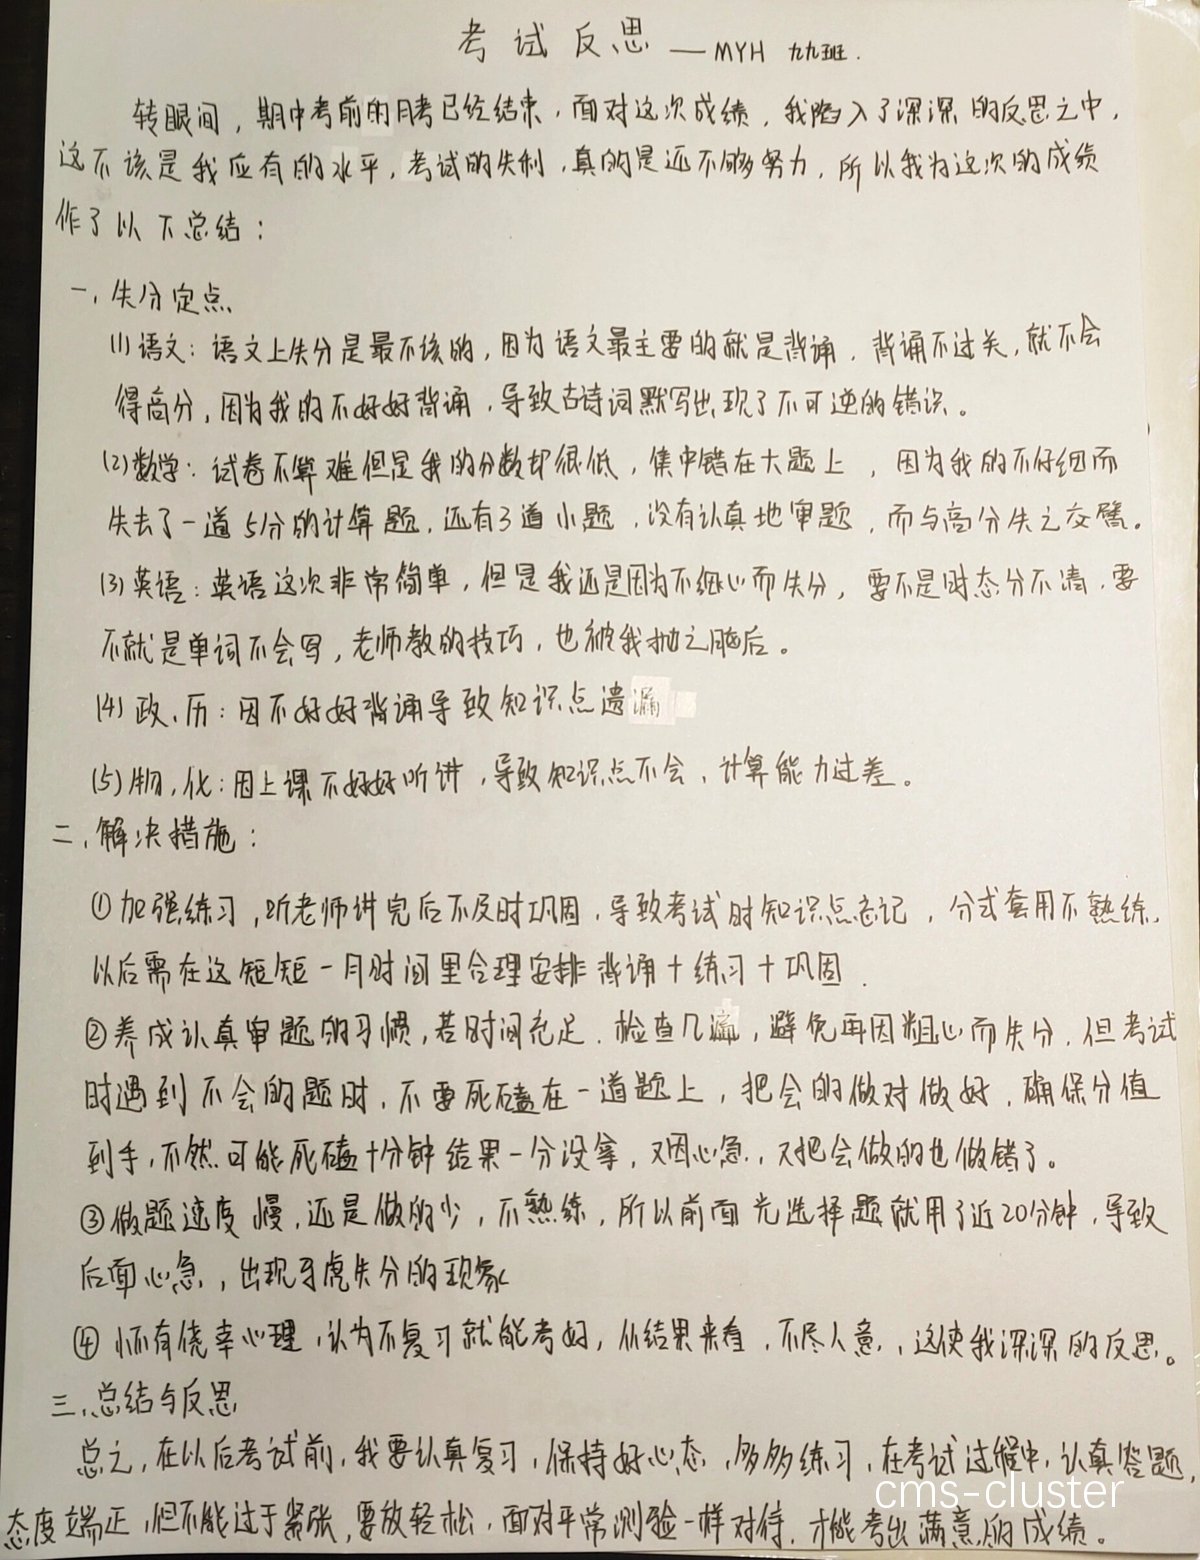 考试反思 —MYH 九九班.
转眼间，期中考前的月考已经结束，面对这次成绩，我陷入了深深的反思之中，
这不该是我应有的水平，考试的失利，真的是还不够努力，所以我为这次的成绩
作了以下总结：
一、失分定点
(1)语文：语文上失分是最不该的，因为语文最主要的就是背诵，背诵不过关，就不会
得高分，因为我的不好好背诵，导致古诗词默写出现了不可逆的错误。
(2)数学：试卷不算难但是我的分数却很低，集中错在大题上，因为我的不仔细而
失去了一道5分的计算题，还有3道小题，没有认真地审题，而与高分失之交臂。
(3)英语：英语这次非常简单，但是我还是因为不细心而失分，要不是时态分不清，要
不就是单词不会写，老师教的技巧，也被我抛之脑后。
(4)政、历：因不好好背诵导致知识点遗漏
(5)物，化：因上课不好好听讲，导致知识点不会，计算能力过差。
二、解决措施：
①加强练习，听老师讲完后不及时巩固，导致考试时知识点忘记，分式套用不熟练，
以后需在这短短一月时间里合理安排背诵+练习+巩固.
②养成认真审题的习惯，若时间充足，检查几遍，避免再因粗心而失分，但考试
时遇到不会的题时，不要死磕在一道题上，把会的做对做好，确保分值
到手，不然可能死磕十分钟结果一分没拿，又因心急，又把会做的也做错了。
③做题速度慢，还是做的少，不熟练，所以前面光选择题就用了近20分钟，导致
后面心急，出现马虎失分的现象
④怀有侥幸心理，认为不复习就能考好，从结果来看，不尽人意，这使我深深的反思。
三、总结与反思
总之，在以后考试前，我要认真复习，保持好心态，多多练习，在考试过程中，认真答题，
态度端正，但不能过于紧张，要放轻松，面对平常测验一样对待，才能考出满意的成绩。
cms-cluster